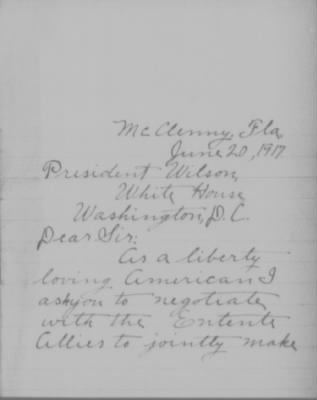 McClenny, Fla,
June 20, 1917.
President Wilson,
White House
Washington, D.C.
Dear Sir:
As a liberty
loving American I
ask you to negotiate
with the Entente
Allies to jointly make